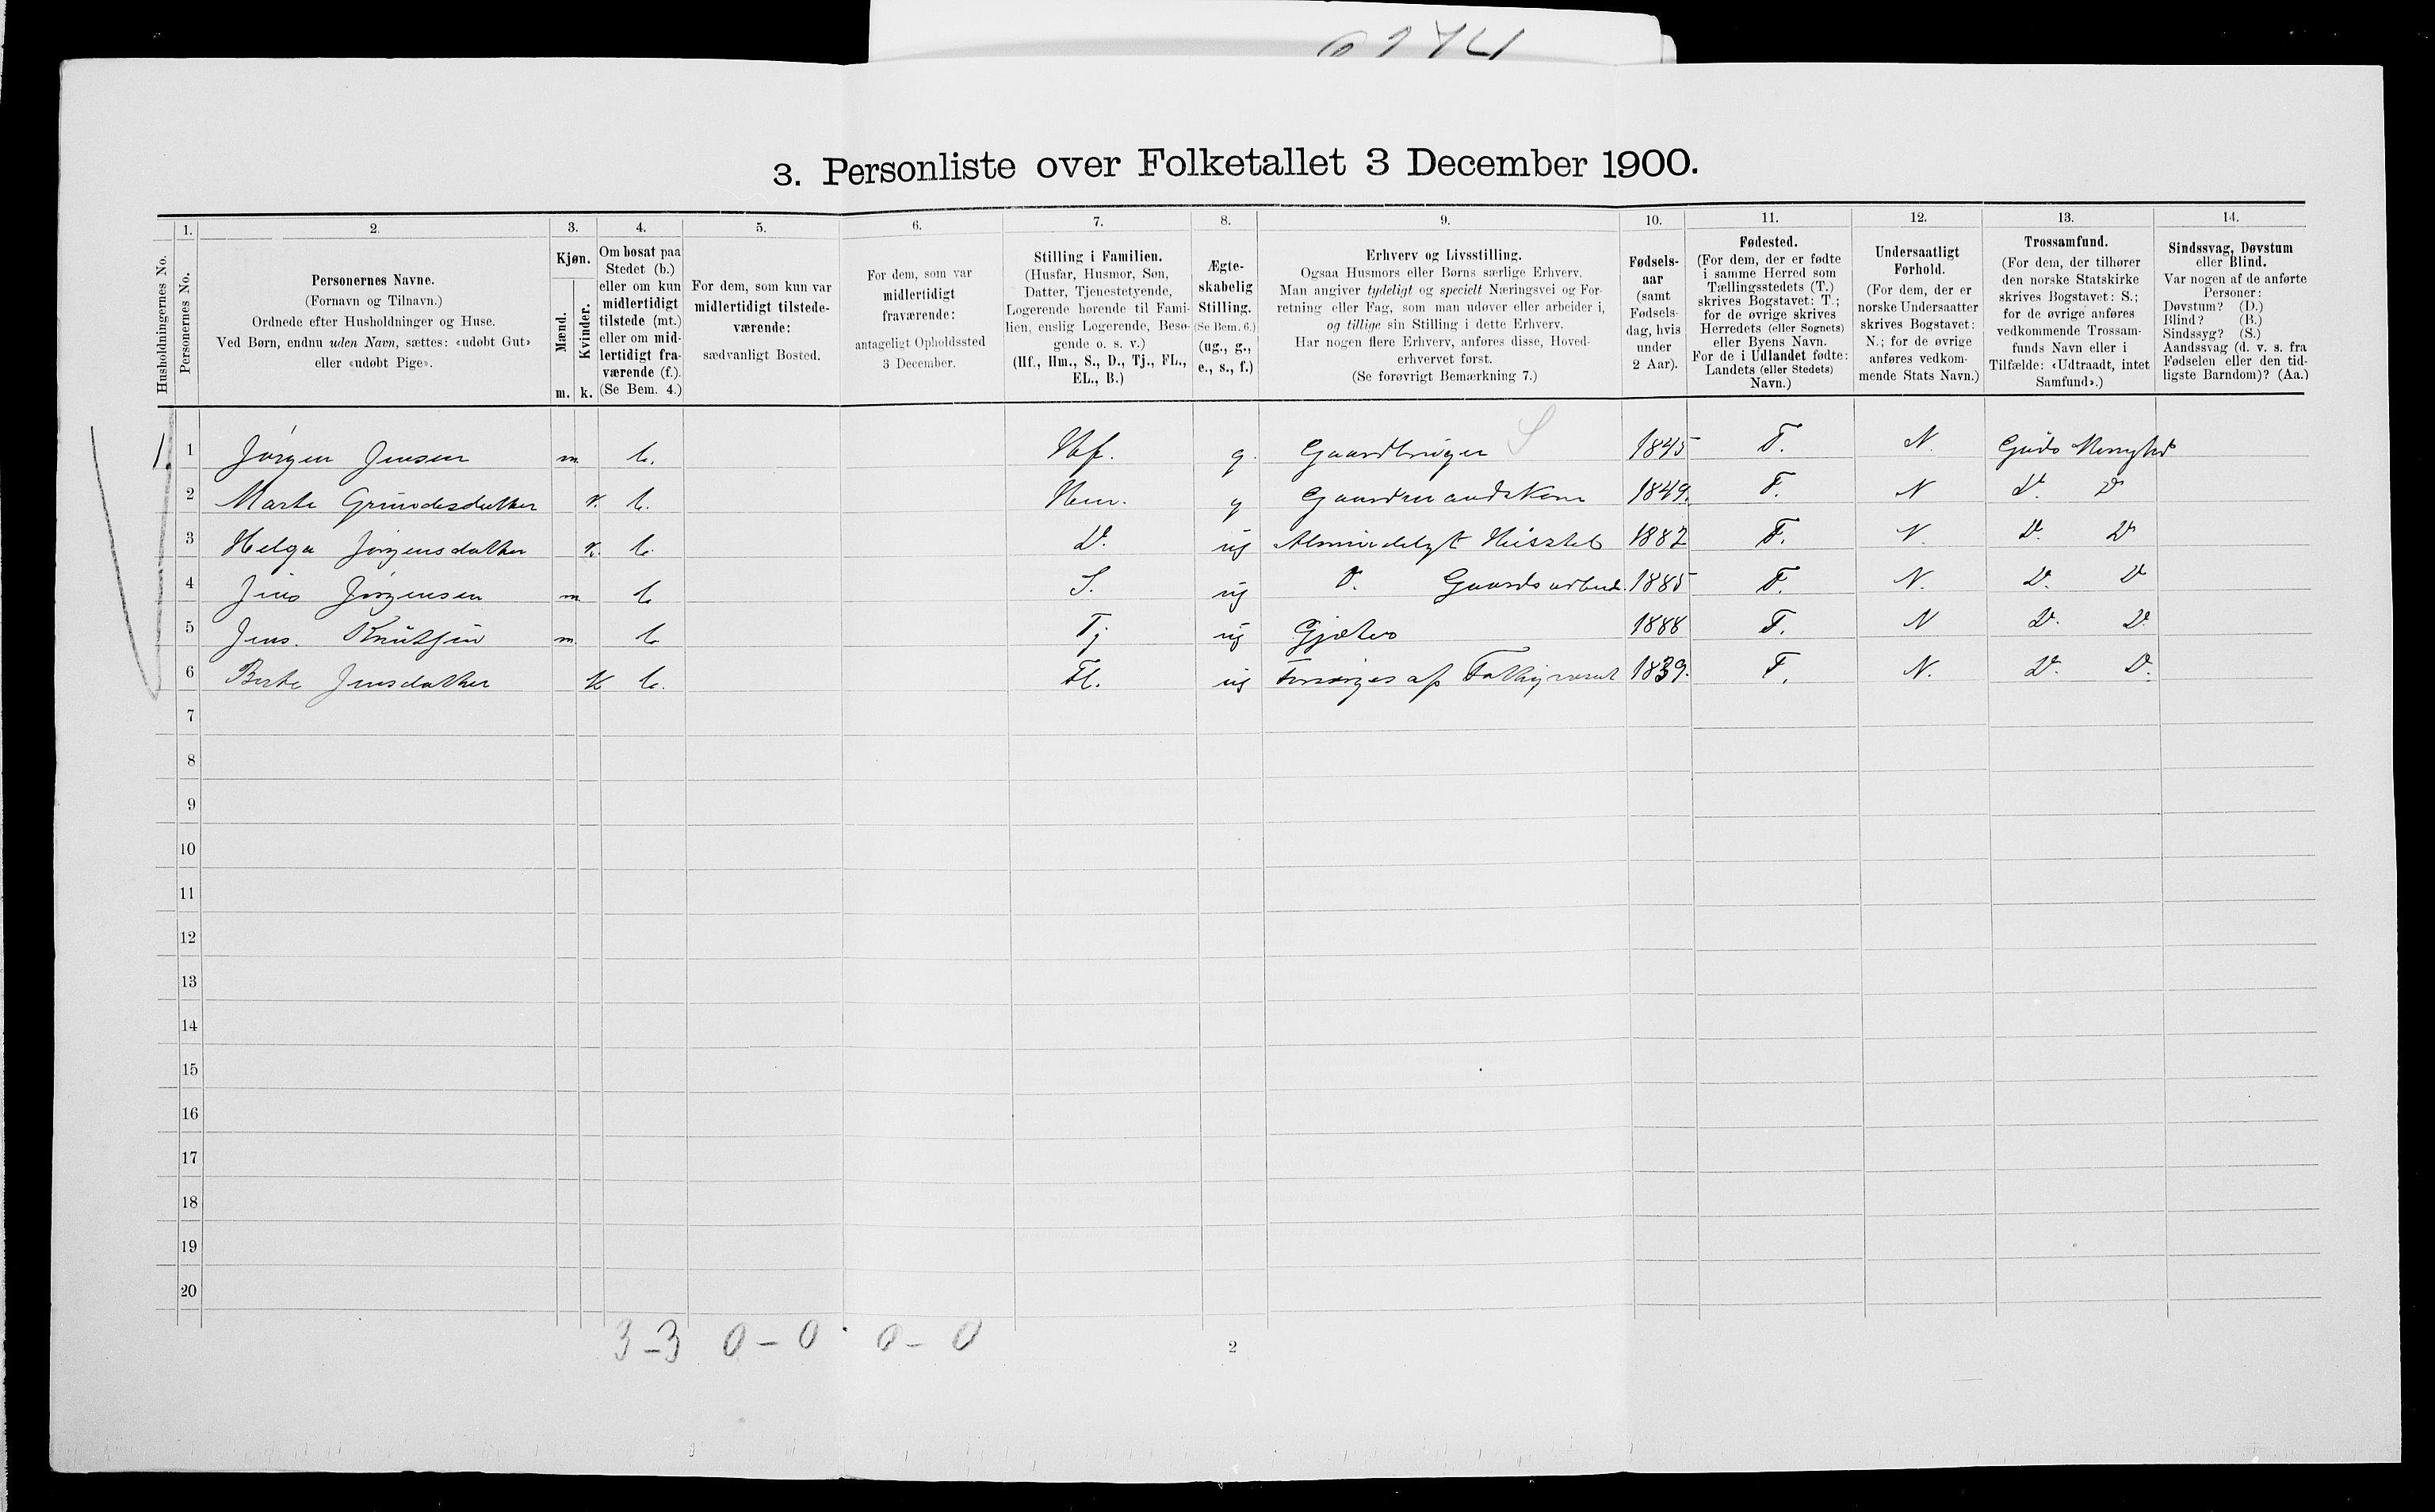 3. Personliste over Folketallet 3 December 1900.
1. 2. 3. 4. 5. 6. 7. 8. 9. 10. 11. 12. 13. 14.
Husholdningernes No.
Personernes No.
Personernes Navne.
(Fornavn og Tilnavn.)
Ordnede efter Husholdninger og Huse.
Ved Børn, endnu uden Navn, sættes: «udøbt Gut»
eller «udøbt Pige».
Kjøn.
Mænd.
Kvinder.
m. k.
Om bosat paa
Stedet (b.)
eller om kun
midlertidigt
tilstede (mt.)
eller om mid-
lertidigt fra-
værende (f.).
(Se Bem. 4.)
For dem, som kun var
midlertidigt tilstede-
værende:
sædvanligt Bosted.
For dem, som var
midlertidigt
fraværende:
antageligt Opholdssted
3 December.
Stilling i Familien.
(Husfar, Husmor, Søn,
Datter, Tjenestetyende,
Logerende hørende til Fami-
lien, enslig Logerende, Besø-
gende o. s. v.)
(Hf., Hm., S., D., Tj., FL.,
EL., B.)
Ægte-
skabelig
Stilling.
(Se Bem. 6.)
(ug., g.,
e., s., f.)
Erhverv og Livsstilling.
Ogsaa Husmors eller Børns særlige Erhverv.
Man angiver tydeligt og specielt Næringsvei og For-
retning eller Fag, som man udøver eller arbeider i,
og tillige sin Stilling i dette Erhverv.
Har nogen flere Erhverv, anføres disse, Hoved-
erhvervet først.
(Se forøvrigt Bemærkning 7.)
Fødsels-
aar
(samt
Fødsels-
dag, hvis
under
2 Aar).
Fødested.
(For dem, der er fødte
i samme Herred som
Tællingsstedets (T.)
skrives Bogstavet: T.;
for de øvrige skrives
Herredets (eller Sognets)
eller Byens Navn.
For de i Udlandet fødte:
Landets (eller Stedets)
Navn.)
Undersaatligt
Forhold.
(For dem, der er
norske Undersaatter
skrives Bogstavet:
N.; for de øvrige
anføres vedkom-
mende Stats Navn.)
Trossamfund.
(For dem, der tilhører
den norske Statskirke
skrives Bogstavet: S.;
for de øvrige anføres
vedkommende Trossam-
funds Navn eller i
Tilfælde: «Udtraadt, intet
Samfund».)
Sindssvag, Døvstum
eller Blind.
Var nogen af de anførte
Personer:
Døvstum? (D.)
Blind? (B.)
Sindssyg? (S.)
Aandssvag (d. v. s. fra
Fødselen eller den tid-
ligste Barndom)? (Aa.)
1. 1 Jørgen Jensen m b. Hf. g. Gaardbruger S 1845 T. N.
2 Marte k. b. Hm. g Gaardmandskone 1849. T. N D. D
3 Helga Jørgensdatter k. b. D. ug 1882 T. N. D. D
4 Jens Jørgensen m b S. ug D. Gaardsarbeid. 1885 T. N. D. D
5 Jens. Knutsen m b Tj ug Gjæter 1888 T. N D. D.
6 Berte Jensdatter k b. Fl. ug Forsørges af 1839. T. N. D. D.
7
8
9
10
11
12
13
14
15
16
17
18
19
20
3 - 3 0 - 0 0 - 0
2